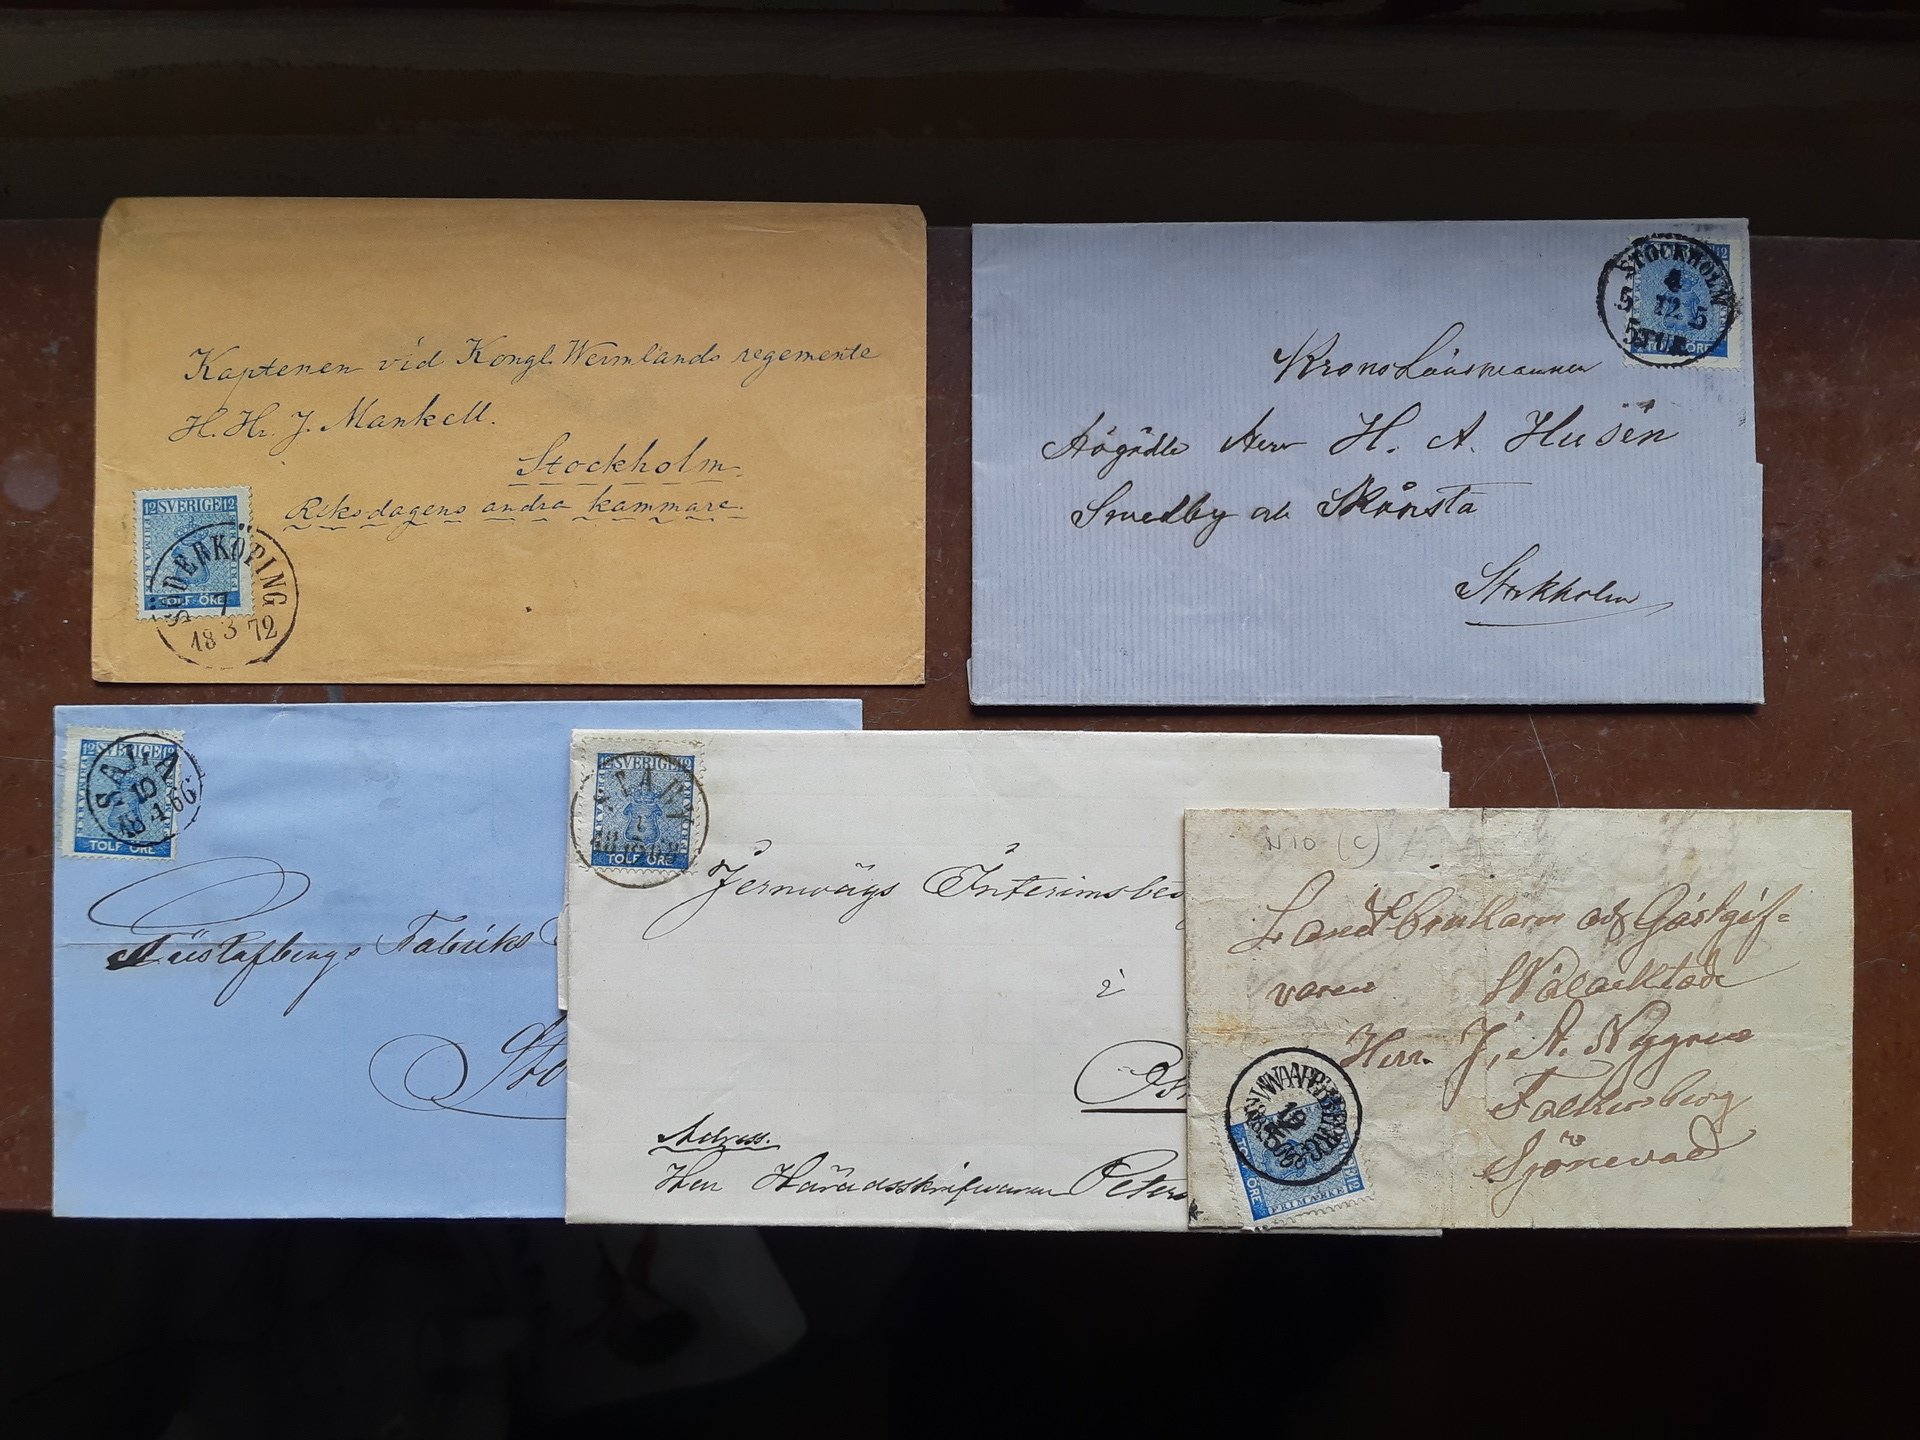 Kaptenen vid Kongl. Wermlands regemente
H. Hr. J. Mankell.
Stockholm.
Riksdagens andra kammare.
12 SVERIGE 12
FRIMÄRKE
TOLF ÖRE
SÖDERKÖPING
7
18 3 72
12
STOCKHOLM
4
5 12 5
5 TUR
ÖRE
Krono Länsmannen
Högädle Herr H. A. Husén
Smedby och Skånsta
Stockholm
12 SVERIGE 12
TOLF ÖRE
SALA
10
18 4 66
Gustafsbergs Fabriks
Sto
12 SVERIGE 12
TOLF ÖRE
Jernwägs Interimsbes
à
Adress.
Herr Häradsskrifvaren Peters
N10 (c)
Landtbrukaren och Gästgif=
varen Wälacktade
Herr J. A. Nygren
Falkenberg
Sjönevad
WARBERG
12
TOLF ÖRE
FRIMÄRKE
12